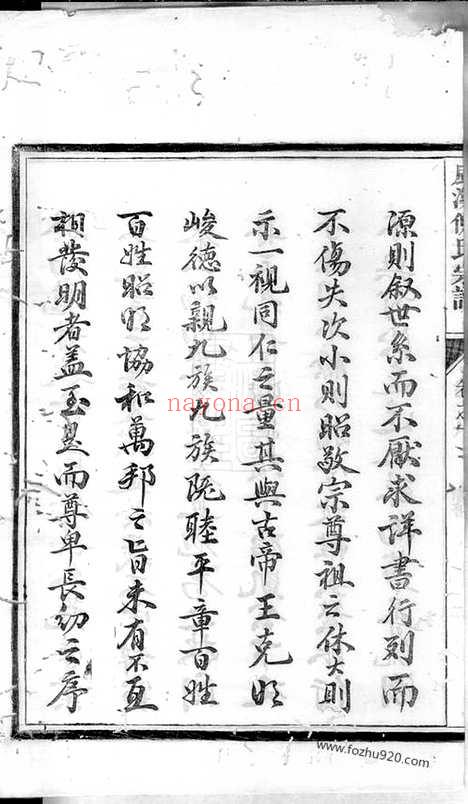 源則敘世系而不厭求詳書行列而
不傷失次小則昭敬宗尊祖之休大則
示一視同仁之量其與古帝王克明
峻德以親九族九族既睦平章百姓
百姓昭明協和萬邦之旨未有不互
相發明者盖至是而尊卑長幼之序
氏宗譜
nayona.cn
www.fozhu920.com